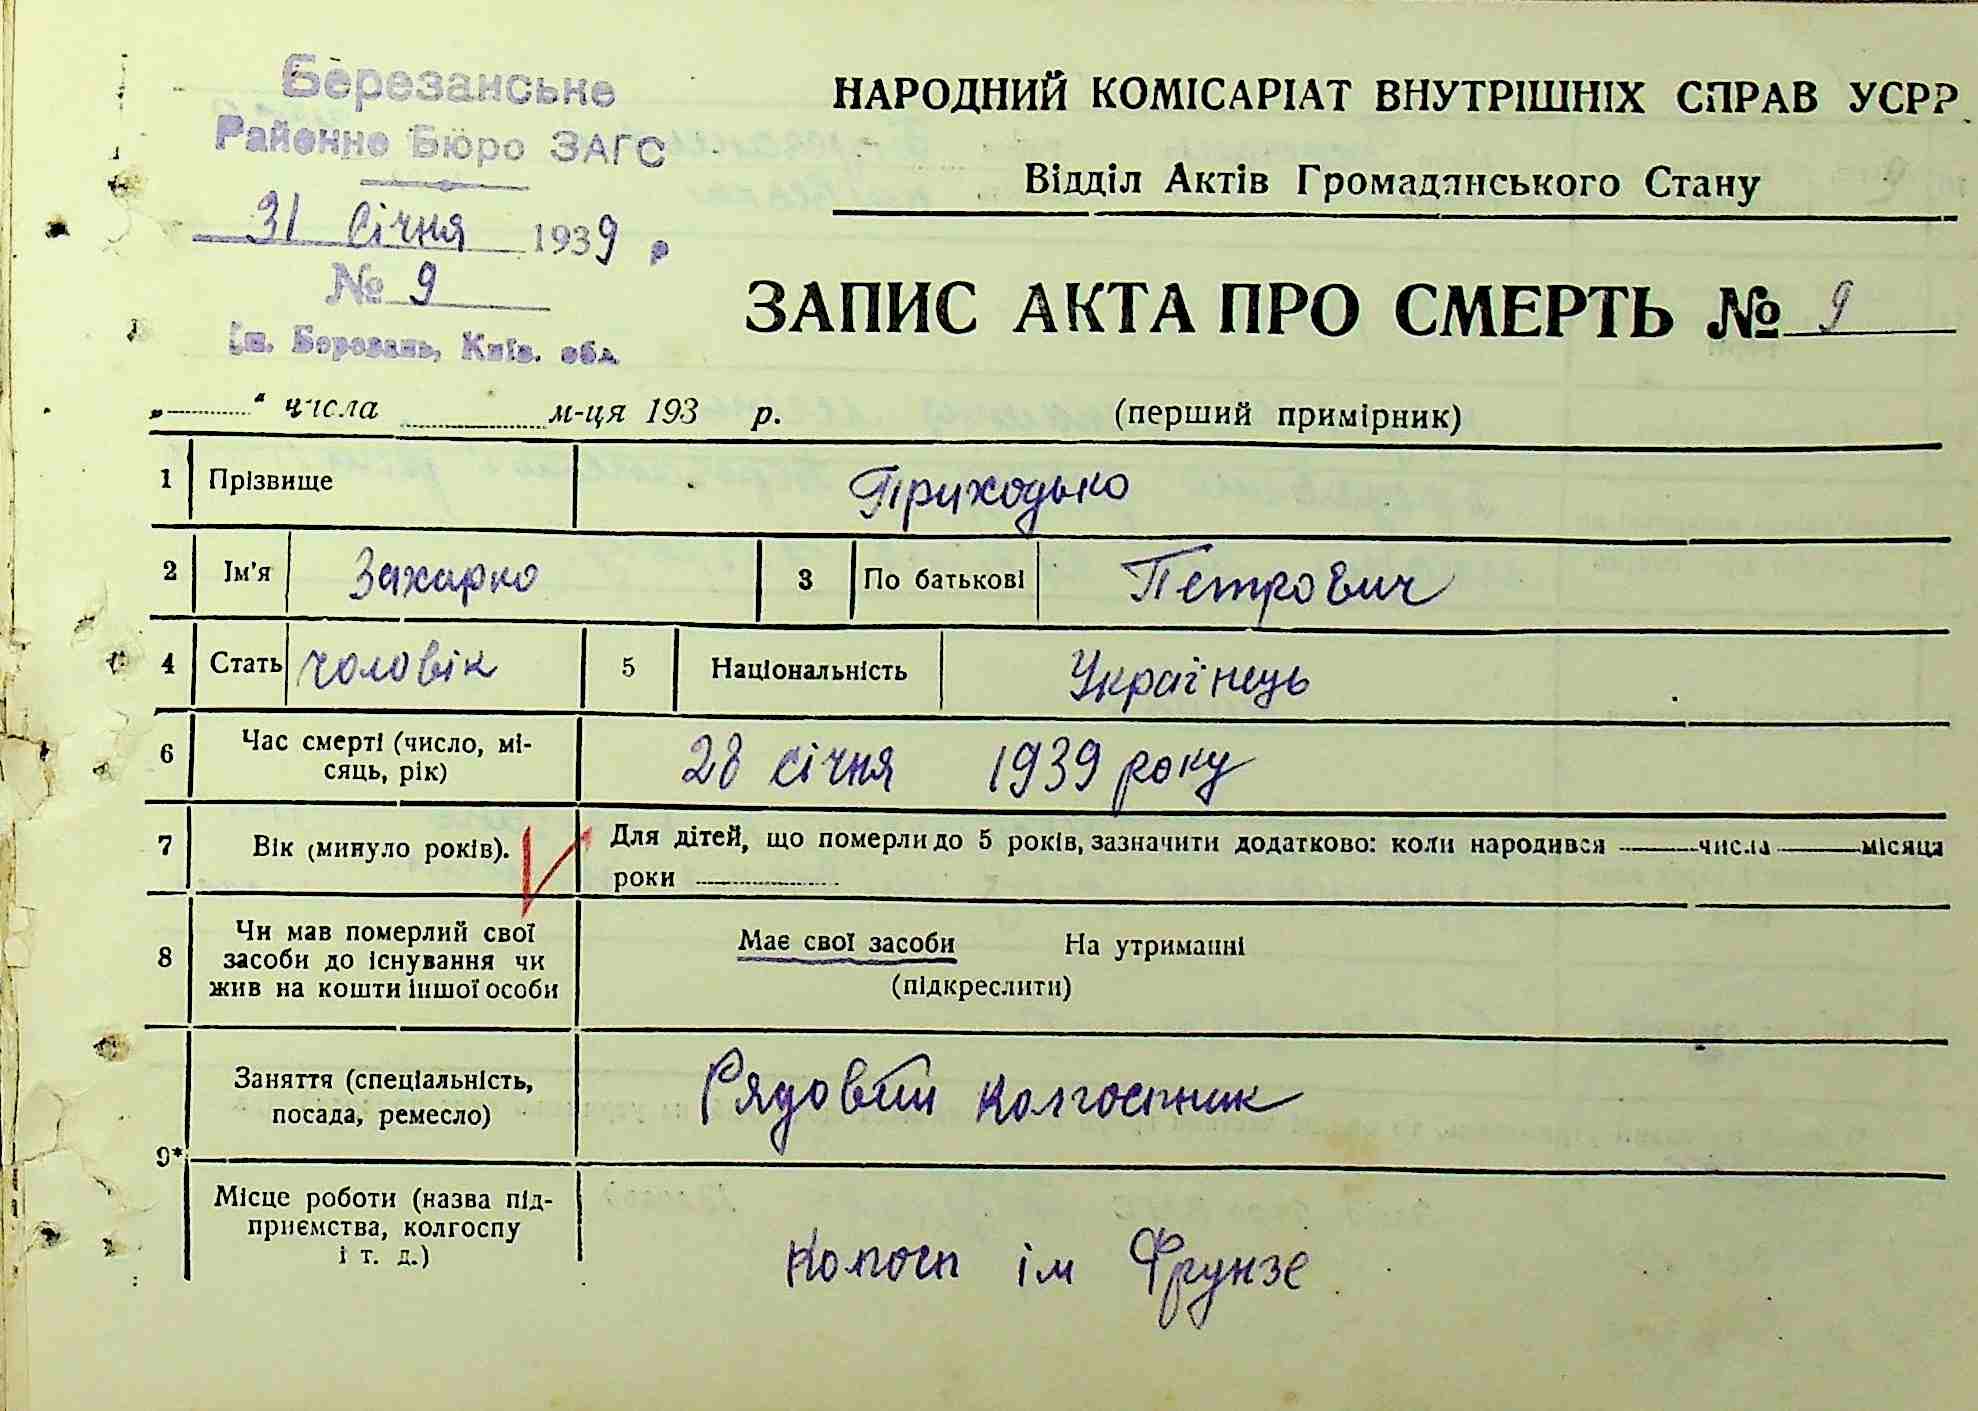 Березанське
Районне Бюро ЗАГС
31 Січня 1939 р
№ 9
см. Березань, Київ. обл.
НАРОДНИЙ КОМІСАРІАТ ВНУТРІШНІХ СПРАВ УСРР
Відділ Актів Громадянського Стану
ЗАПИС АКТА ПРО СМЕРТЬ № 9
„ “ числа м-ця 193 р. (перший примірник)
1 Прізвище Приходько
2 Ім'я Захарко 3 По батькові Петрович
4 Стать чоловік 5 Національність Українець
6 Час смерті (число, мі-
сяць, рік) 28 січня 1939 року
7 Вік (минуло років). Для дітей, що померли до 5 років, зазначити додатково: коли народився числа місяця
роки
8 Чи мав померлий свої
засоби до існування чи
жив на кошти іншої особи
Має свої засоби На утриманні
(підкреслити)
9* Заняття (спеціальність,
посада, ремесло) Рядовий колгоспник
Місце роботи (назва під-
приємства, колгоспу
і т. д.)
Колгосп ім Фрунзе